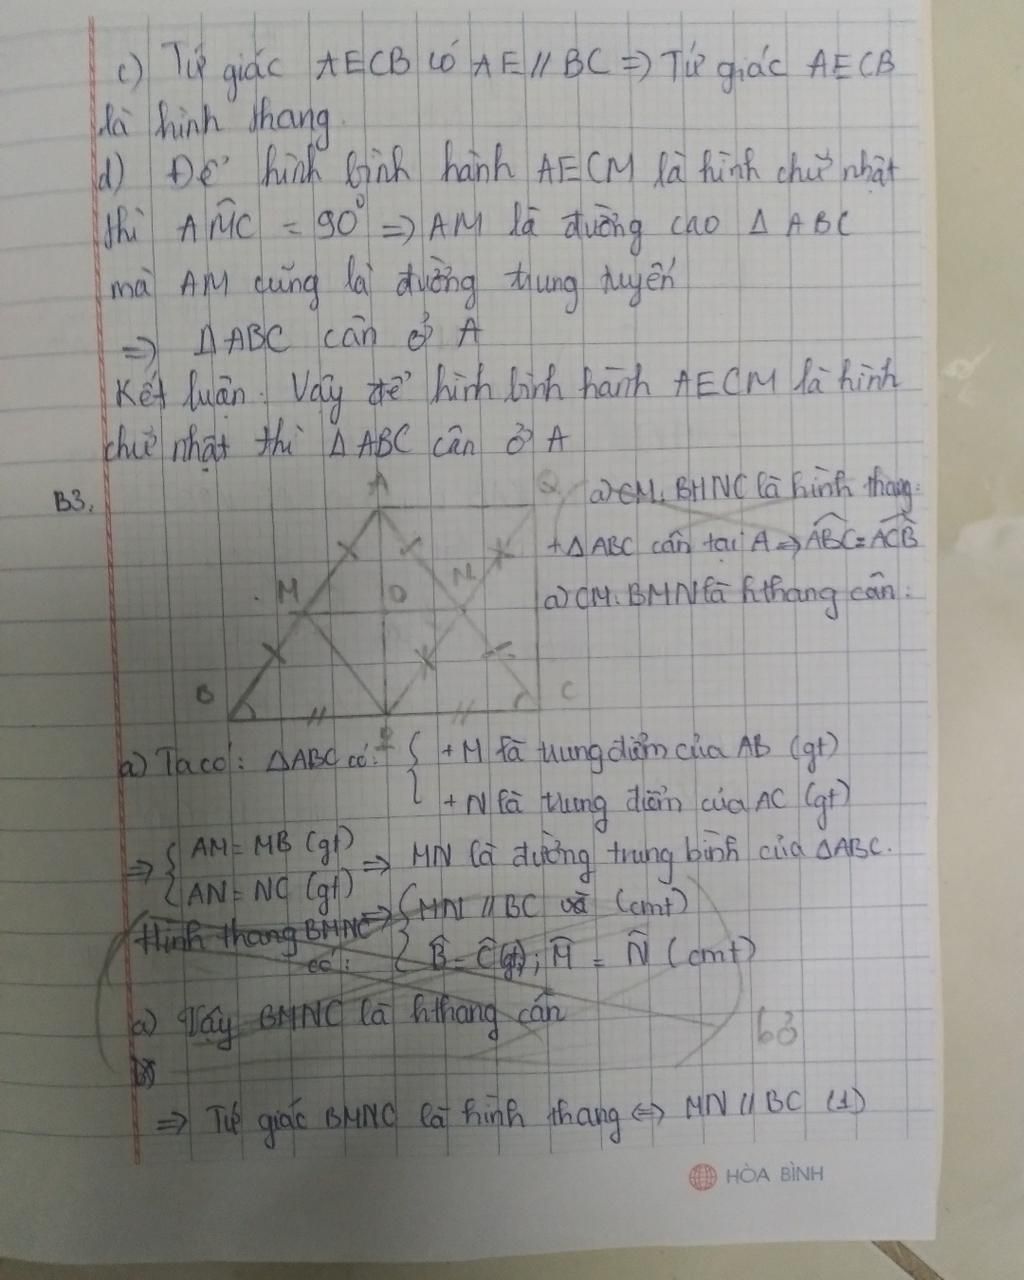 c) Tứ giác AECB có AE // BC => Tứ giác AECB
là hình thang.
d) Để hình bình hành AECM là hình chữ nhật
thì AM̂C = 90⁰ => AM là đường cao Δ ABC
mà AM cũng là đường trung tuyến
=> ΔABC cân ở A
Kết luận: Vậy để hình bình hành AECM là hình
chữ nhật thì Δ ABC cân ở A
B3.
A
Q
M
O
N
B
C
a) CM: BMNC là hình thang:
+ ΔABC cân tại A => ABC = ACB
a) CM: BMN là hthang cân:
a) Ta có: ΔABC có: { + M là trung điểm của AB (gt)
+ N là trung điểm của AC (gt)
=> { AM = MB (gt)
AN = NC (gt) => MN là đường trung bình của ΔABC.
Hình thang BMNC => { MN // BC và (cmt)
có: B̂ = Ĉ (gt); M̂ = N̂ (cmt)
a) Vậy BMNC là hthang cân
bỏ
=> Tứ giác BMNC là hình thang <=> MN // BC (1)
HÒA BÌNH